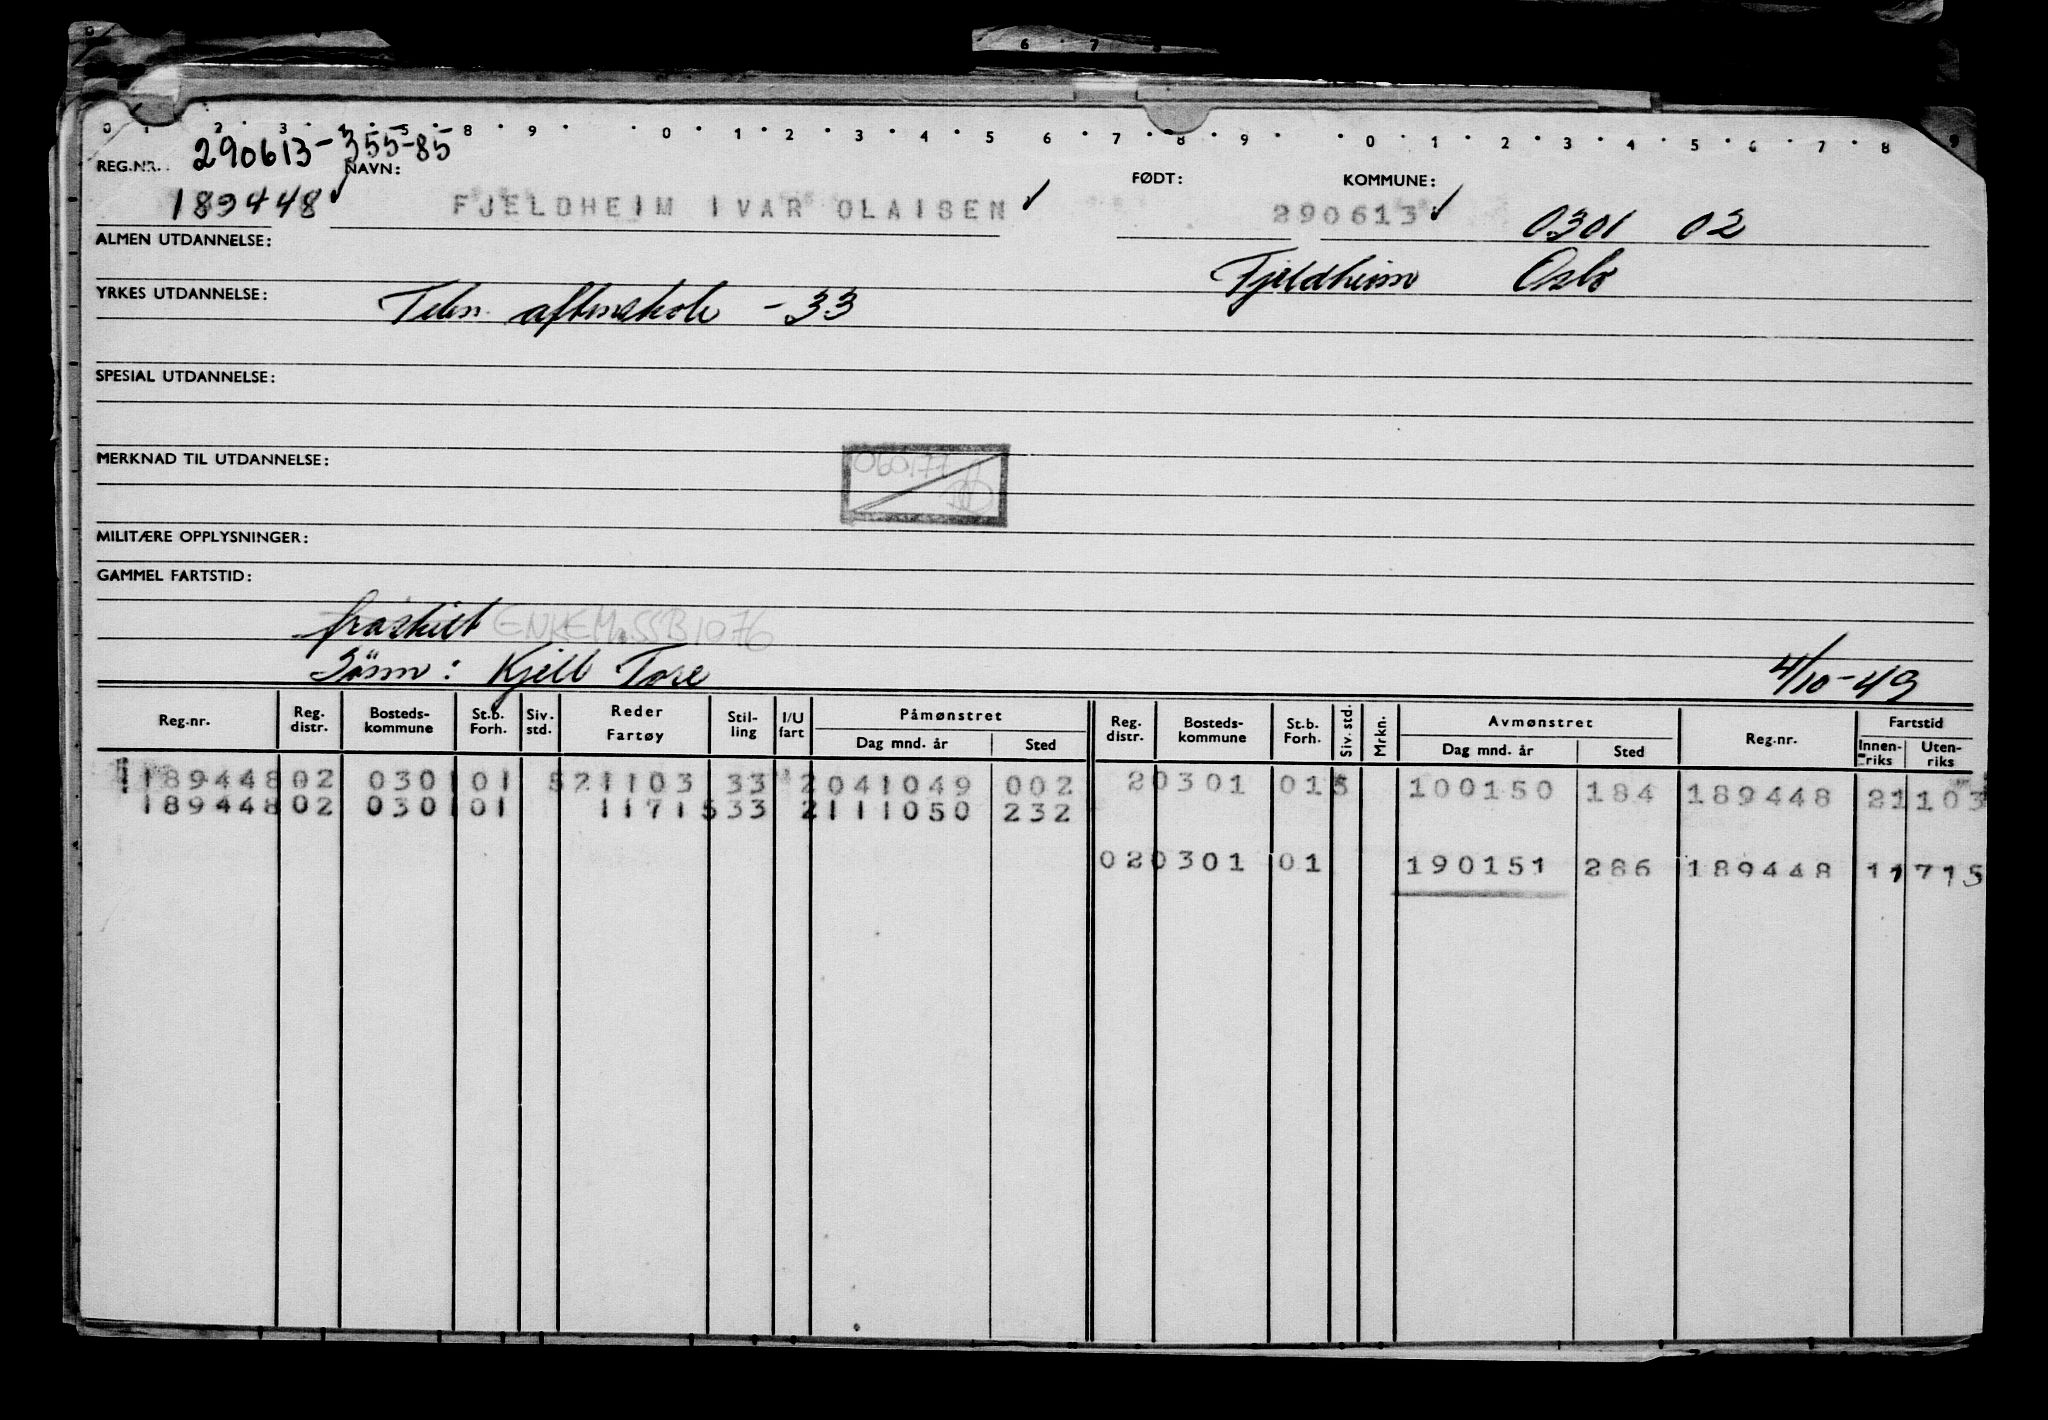 6 7 8
0 1 2 3 4 5 8 9 0 1 2 3 4 5 6 7 8 9 0 1 2 3 4 5 6 7 8 9
REG.NR. 290613-355-85 NAVN: FØDT: KOMMUNE:
189448 FJELDHEIM IVAR OLAISEN 290613 0301 02
ALMEN UTDANNELSE: Fjeldheim Oslo
YRKES UTDANNELSE: aftenskole -33
SPESIAL UTDANNELSE:
MERKNAD TIL UTDANNELSE: 060177
MILITÆRE OPPLYSNINGER:
GAMMEL FARTSTID:
fraskilt ENKEM. SSB 1976
Sønn: Kjell Tore 4/10-49
Reg.nr. Reg. distr. Bosteds-kommune St.b. Forh. Siv. std. Reder Fartøy Stil-ling I/U fart Påmønstret Dag mnd. år Sted Reg. distr. Bosteds-kommune St.b. Forh. Siv. std. Mrkn. Avmønstret Dag mnd. år Sted Reg.nr. Fartstid Innen-riks Uten-riks
189448 02 0301 01 5 21103 33 2 041049 002 2 0301 01 5 100150 184 189448 21103
189448 02 0301 01 11715 33 2 111050 232
02 0301 01 190151 286 189448 11715